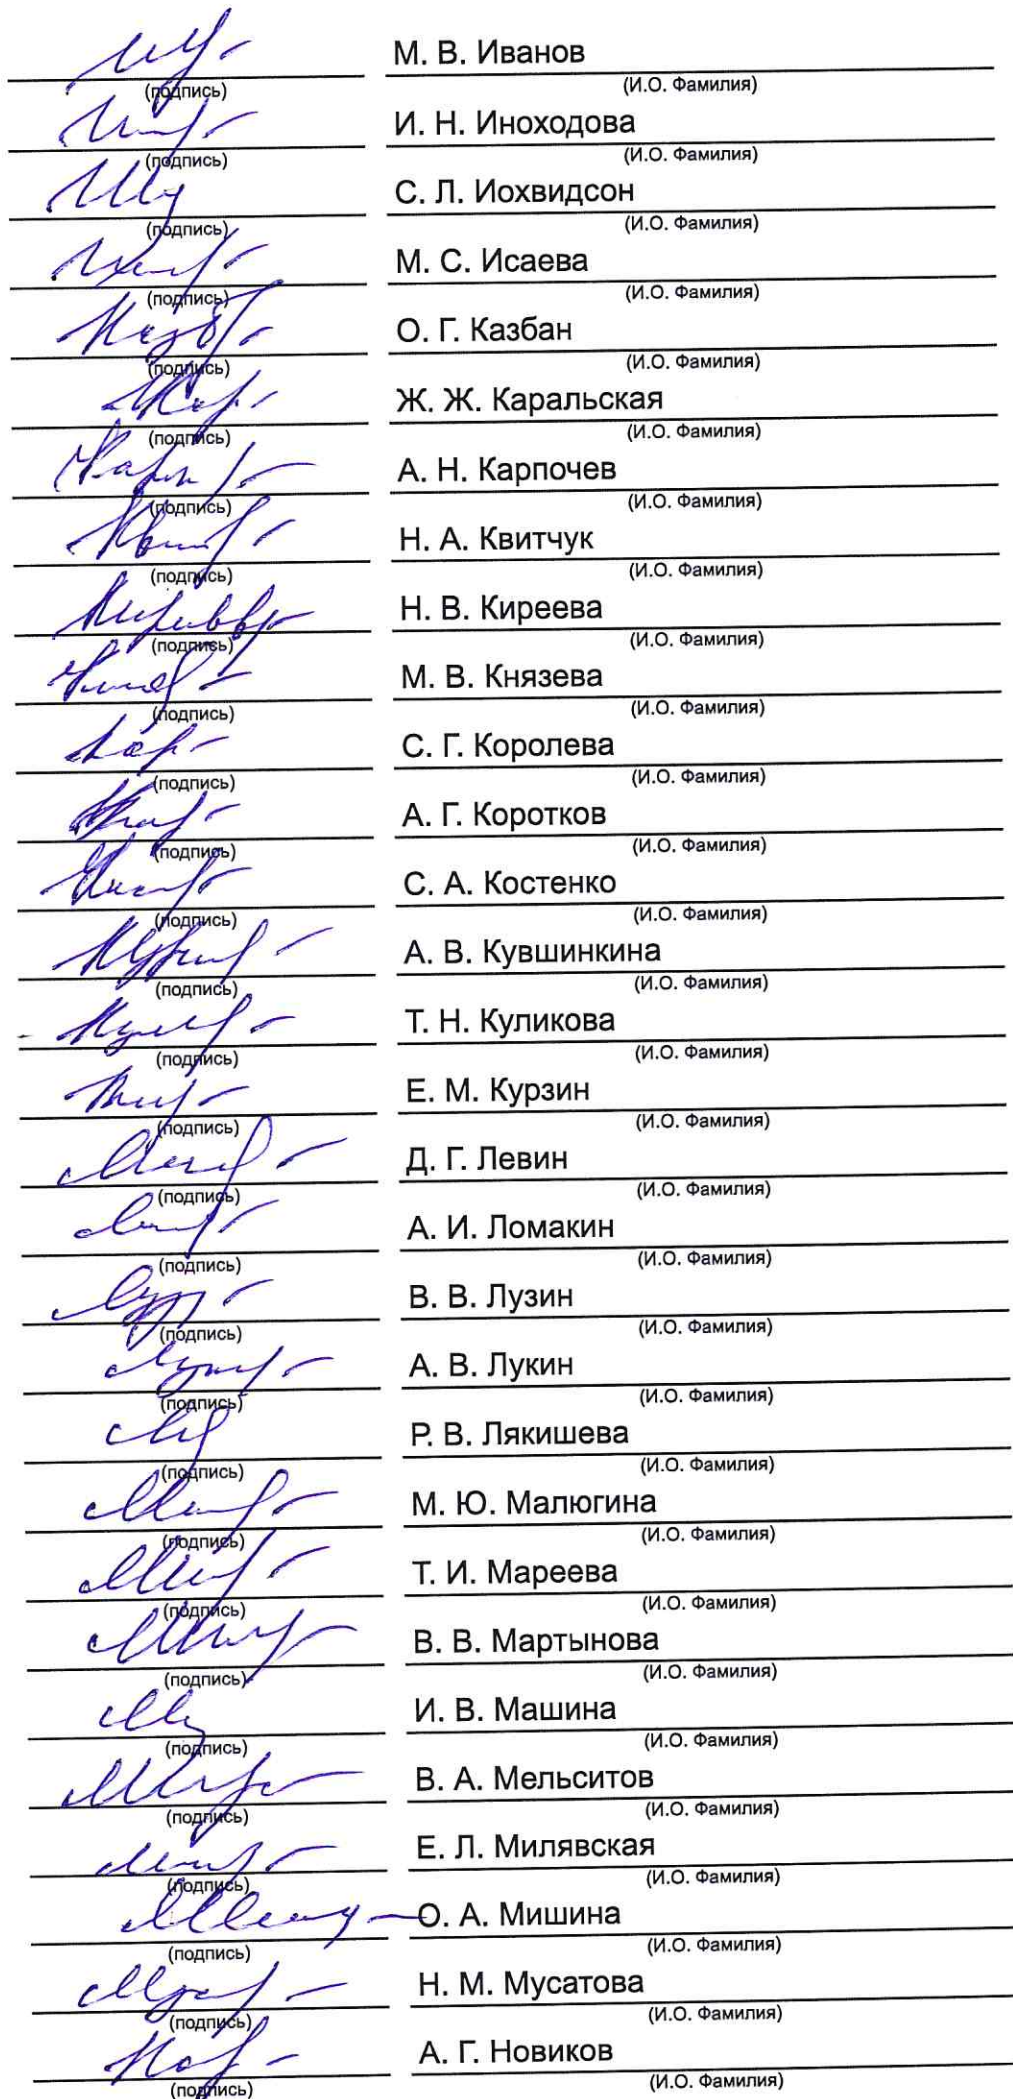 М. В. Иванов
(подпись) (И.О. Фамилия)
И. Н. Иноходова
(подпись) (И.О. Фамилия)
С. Л. Иохвидсон
(подпись) (И.О. Фамилия)
М. С. Исаева
(подпись) (И.О. Фамилия)
О. Г. Казбан
(подпись) (И.О. Фамилия)
Ж. Ж. Каральская
(подпись) (И.О. Фамилия)
А. Н. Карпочев
(подпись) (И.О. Фамилия)
Н. А. Квитчук
(подпись) (И.О. Фамилия)
Н. В. Киреева
(подпись) (И.О. Фамилия)
М. В. Князева
(подпись) (И.О. Фамилия)
С. Г. Королева
(подпись) (И.О. Фамилия)
А. Г. Коротков
(подпись) (И.О. Фамилия)
С. А. Костенко
(подпись) (И.О. Фамилия)
А. В. Кувшинкина
(подпись) (И.О. Фамилия)
Т. Н. Куликова
(подпись) (И.О. Фамилия)
Е. М. Курзин
(подпись) (И.О. Фамилия)
Д. Г. Левин
(подпись) (И.О. Фамилия)
А. И. Ломакин
(подпись) (И.О. Фамилия)
В. В. Лузин
(подпись) (И.О. Фамилия)
А. В. Лукин
(подпись) (И.О. Фамилия)
Р. В. Лякишева
(подпись) (И.О. Фамилия)
М. Ю. Малюгина
(подпись) (И.О. Фамилия)
Т. И. Мареева
(подпись) (И.О. Фамилия)
В. В. Мартынова
(подпись) (И.О. Фамилия)
И. В. Машина
(подпись) (И.О. Фамилия)
В. А. Мельситов
(подпись) (И.О. Фамилия)
Е. Л. Милявская
(подпись) (И.О. Фамилия)
О. А. Мишина
(подпись) (И.О. Фамилия)
Н. М. Мусатова
(подпись) (И.О. Фамилия)
А. Г. Новиков
(подпись) (И.О. Фамилия)